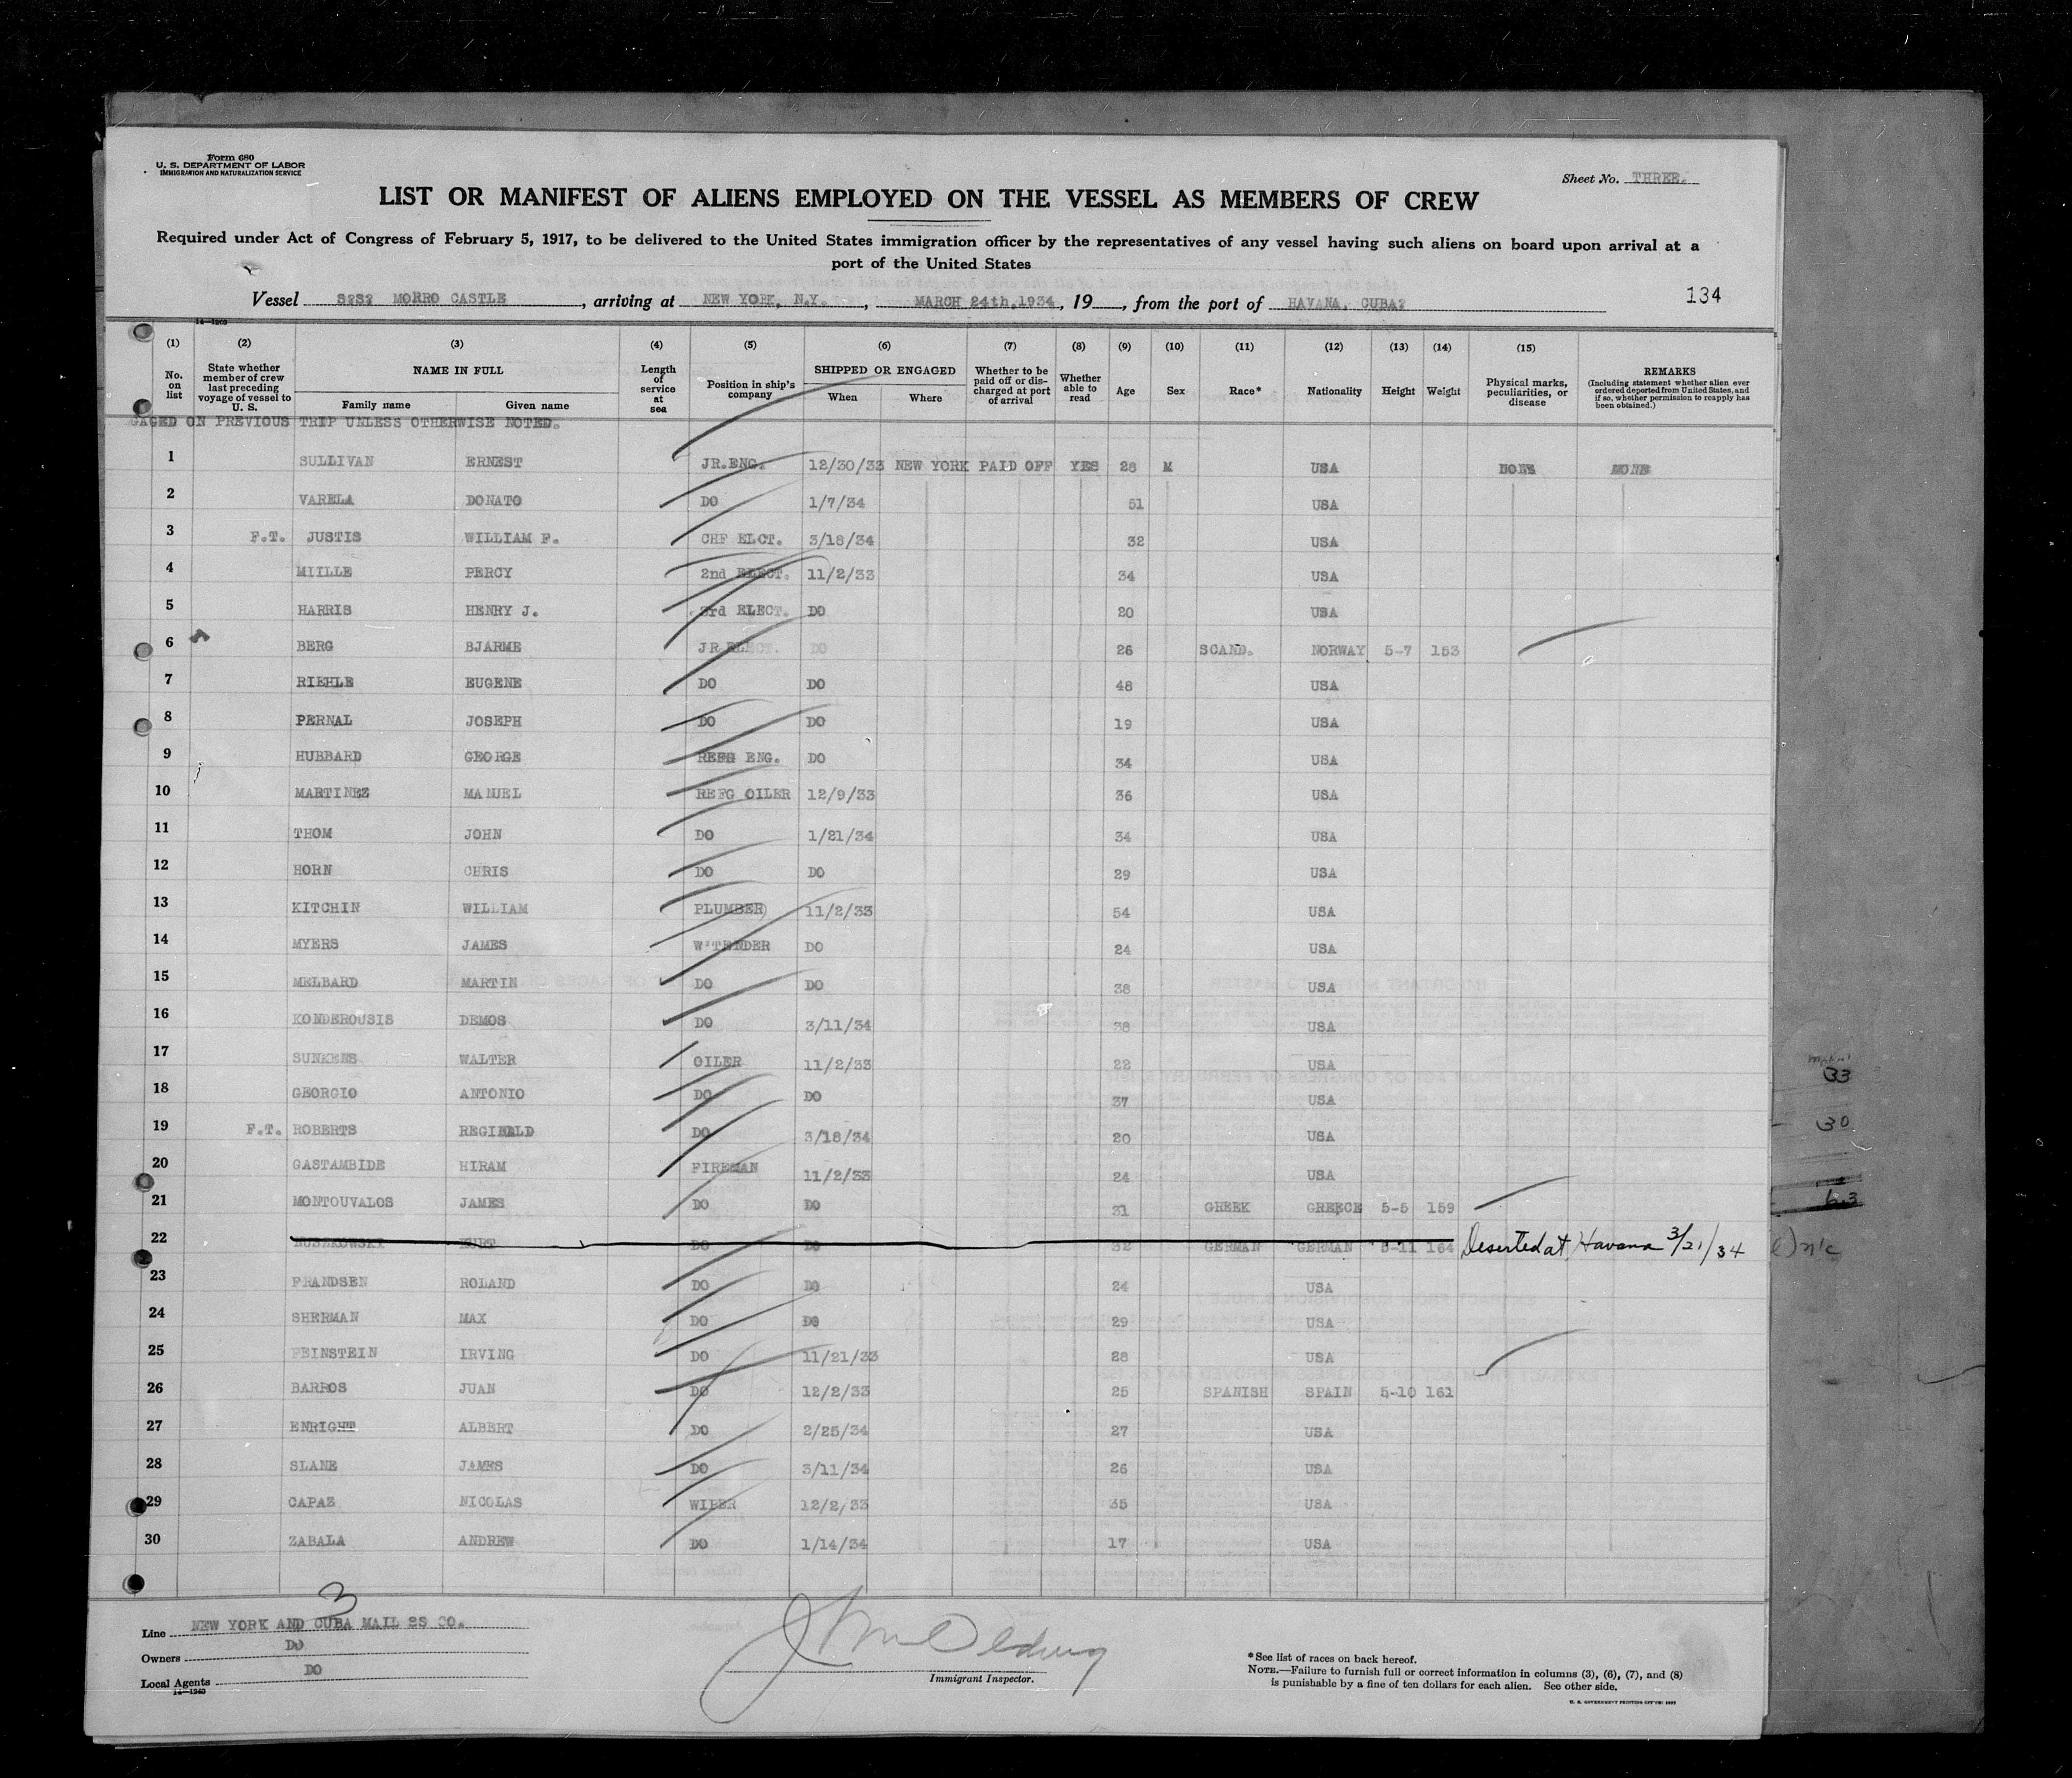 Form 680
U. S. DEPARTMENT OF LABOR
IMMIGRATION AND NATURALIZATION SERVICE
Sheet No. THREE.
LIST OR MANIFEST OF ALIENS EMPLOYED ON THE VESSEL AS MEMBERS OF CREW
Required under Act of Congress of February 5, 1917, to be delivered to the United States immigration officer by the representatives of any vessel having such aliens on board upon arrival at a
port of the United States
Vessel S?S? MORRO CASTLE, arriving at NEW YORK, N.Y., MARCH 24th,1934, 19, from the port of HAVANA, CUBA?
134
14-1240
(1) No. on list
(2) State whether member of crew last preceding voyage of vessel to U. S.
(3) NAME IN FULL Family name Given name
(4) Length of service at sea
(5) Position in ship's company
(6) SHIPPED OR ENGAGED When Where
(7) Whether to be paid off or discharged at port of arrival
(8) Whether able to read
(9) Age
(10) Sex
(11) Race*
(12) Nationality
(13) Height
(14) Weight
(15) Physical marks, peculiarities, or disease
REMARKS (Including statement whether alien ever ordered deported from United States, and if so, whether permission to reapply has been obtained.)
GAGED ON PREVIOUS TRIP UNLESS OTHERWISE NOTED.
1 SULLIVAN ERNEST JR.ENG. 12/30/33 NEW YORK PAID OFF YES 28 M USA NONE NONE
2 VARELA DONATO DO 1/7/34 51 USA
3 F.T. JUSTIS WILLIAM F. CHF ELCT. 3/18/34 32 USA
4 MIILLE PERCY 2nd ELECT. 11/2/33 34 USA
5 HARRIS HENRY J. 3rd ELECT. DO 20 USA
6 BERG BJARME JR ELECT. DO 26 SCAND. NORWAY 5-7 153
7 RIEHLE EUGENE DO DO 48 USA
8 PERNAL JOSEPH DO DO 19 USA
9 HUBBARD GEORGE REFG ENG. DO 34 USA
10 MARTINEZ MANUEL REFG OILER 12/9/33 36 USA
11 THOM JOHN DO 1/21/34 34 USA
12 HORN CHRIS DO DO 29 USA
13 KITCHIN WILLIAM PLUMBER) 11/2/33 54 USA
14 MYERS JAMES W'TENDER DO 24 USA
15 MELBARD MARTIN DO DO 38 USA
16 KONDEROUSIS DEMOS DO 3/11/34 38 USA
17 SUNKENS WALTER OILER 11/2/33 22 USA
18 GEORGIO ANTONIO DO DO 37 USA
19 F.T. ROBERTS REGINALD DO 3/18/34 20 USA
20 GASTAMBIDE HIRAM FIREMAN 11/2/33 24 USA
21 MONTOUVALOS JAMES DO DO 31 GREEK GREECE 5-5 159
22 KURT DO DO 32 GERMAN GERMAN 5-11 164 Deserted at Havana 3/21/34
23 FRANDSEN ROLAND DO DO 24 USA
24 SHERMAN MAX DO DO 29 USA
25 FEINSTEIN IRVING DO 11/21/33 28 USA
26 BARROS JUAN DO 12/2/33 25 SPANISH SPAIN 5-10 161
27 ENRIGHT ALBERT DO 2/25/34 27 USA
28 SLANE JAMES DO 3/11/34 26 USA
29 CAPAZ NICOLAS WIPER 12/2/33 35 USA
30 ZABALA ANDREW DO 1/14/34 17 USA
33
30
63
3
Line NEW YORK AND CUBA MAIL SS CO.
Owners DO
Local Agents DO
14-1240
Immigrant Inspector.
*See list of races on back hereof.
NOTE.—Failure to furnish full or correct information in columns (3), (6), (7), and (8)
is punishable by a fine of ten dollars for each alien. See other side.
U. S. GOVERNMENT PRINTING OFFICE: 1933